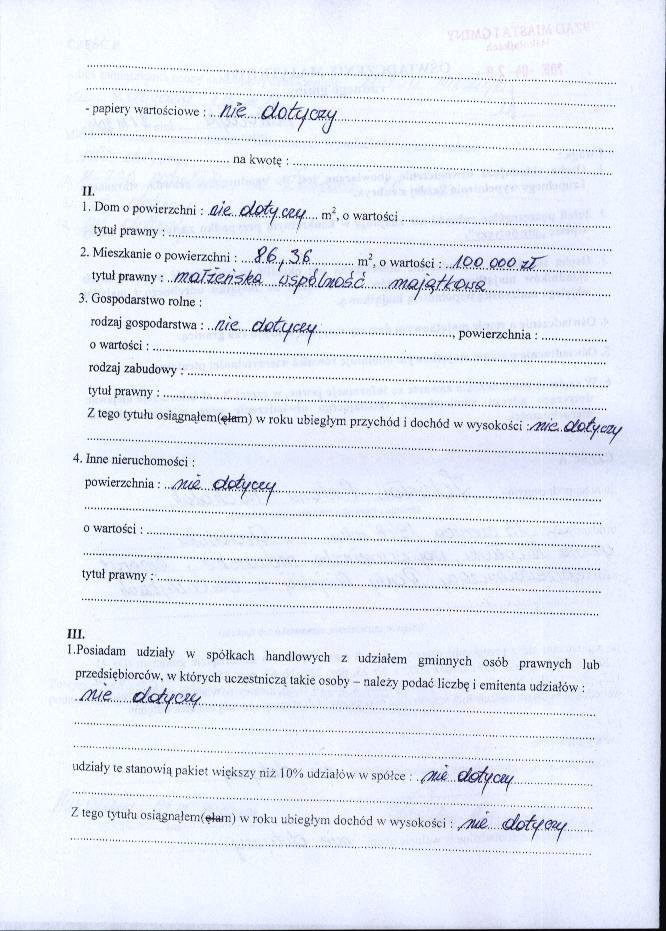 - papiery wartościowe : nie dotyczy
na kwotę :
II.
1. Dom o powierzchni : nie dotyczy m², o wartości
tytuł prawny :
2. Mieszkanie o powierzchni : 86,36 m², o wartości : 100 000 zł
tytuł prawny : małżeńska wspólność majątkowa
3. Gospodarstwo rolne :
rodzaj gospodarstwa : nie dotyczy, powierzchnia :
o wartości :
rodzaj zabudowy :
tytuł prawny :
Z tego tytułu osiągnąłem(ęłam) w roku ubiegłym przychód i dochód w wysokości : nie dotyczy
4. Inne nieruchomości :
powierzchnia : nie dotyczy
o wartości :
tytuł prawny :
III.
1.Posiadam udziały w spółkach handlowych z udziałem gminnych osób prawnych lub
przedsiębiorców, w których uczestniczą takie osoby – należy podać liczbę i emitenta udziałów :
nie dotyczy
udziały te stanowią pakiet większy niż 10% udziałów w spółce : nie dotyczy
Z tego tytułu osiągnąłem(ęłam) w roku ubiegłym dochód w wysokości : nie dotyczy